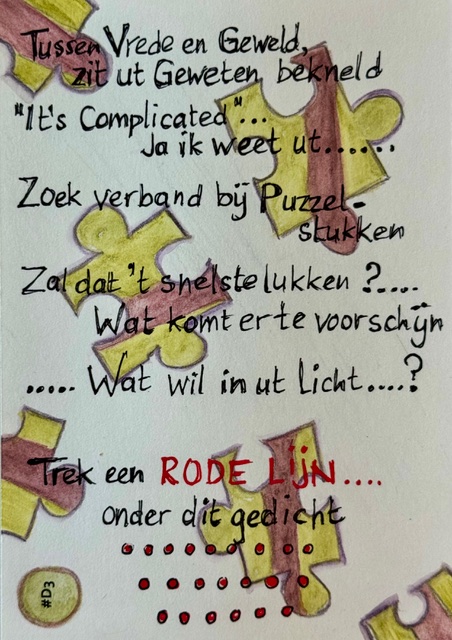 Tussen Vrede en Geweld,
zit ut Geweten bekneld
"It's Complicated"...
Ja ik weet ut......
Zoek verband bij Puzzel-
stukken
Zal dat 't snelste lukken ?....
Wat komt er te voorschijn
..... Wat wil in ut Licht....?
Trek een RODE LIJN....
onder dit gedicht
#D3